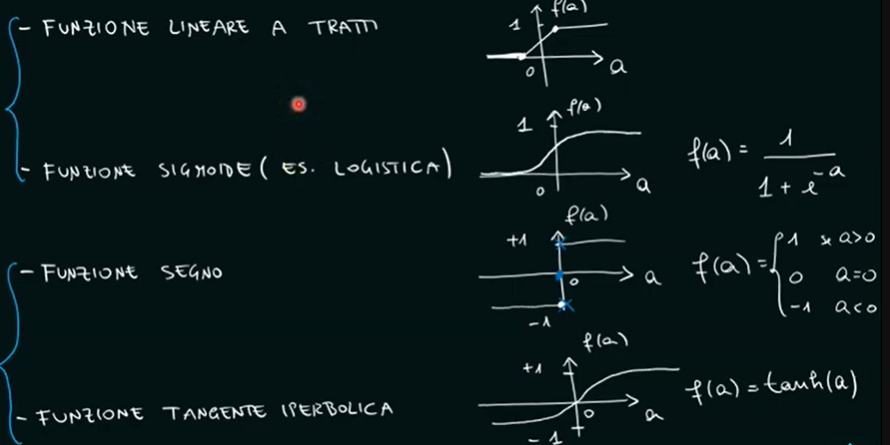 - FUNZIONE LINEARE A TRATTI
1 f(a)
0 a
- FUNZIONE SIGMOIDE ( ES. LOGISTICA )
1 f(a)
0 a
f(a) = 1 / 1 + e^-a
- FUNZIONE SEGNO
+1 f(a)
0 a
-1
f(a) = { 1 se a>0
0 a=0
-1 a<0
- FUNZIONE TANGENTE IPERBOLICA
+1 f(a)
0 a
-1
f(a) = tanh(a)